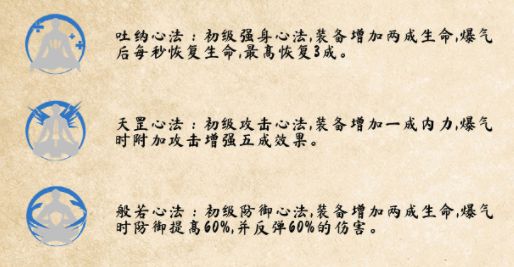 吐纳心法：初级强身心法,装备增加两成生命,爆气
后每秒恢复生命,最高恢复3成。
天罡心法：初级攻击心法,装备增加一成内力,爆气
时附加攻击增强五成效果。
般若心法：初级防御心法,装备增加两成生命,爆气
时防御提高60%,并反弹60%的伤害。